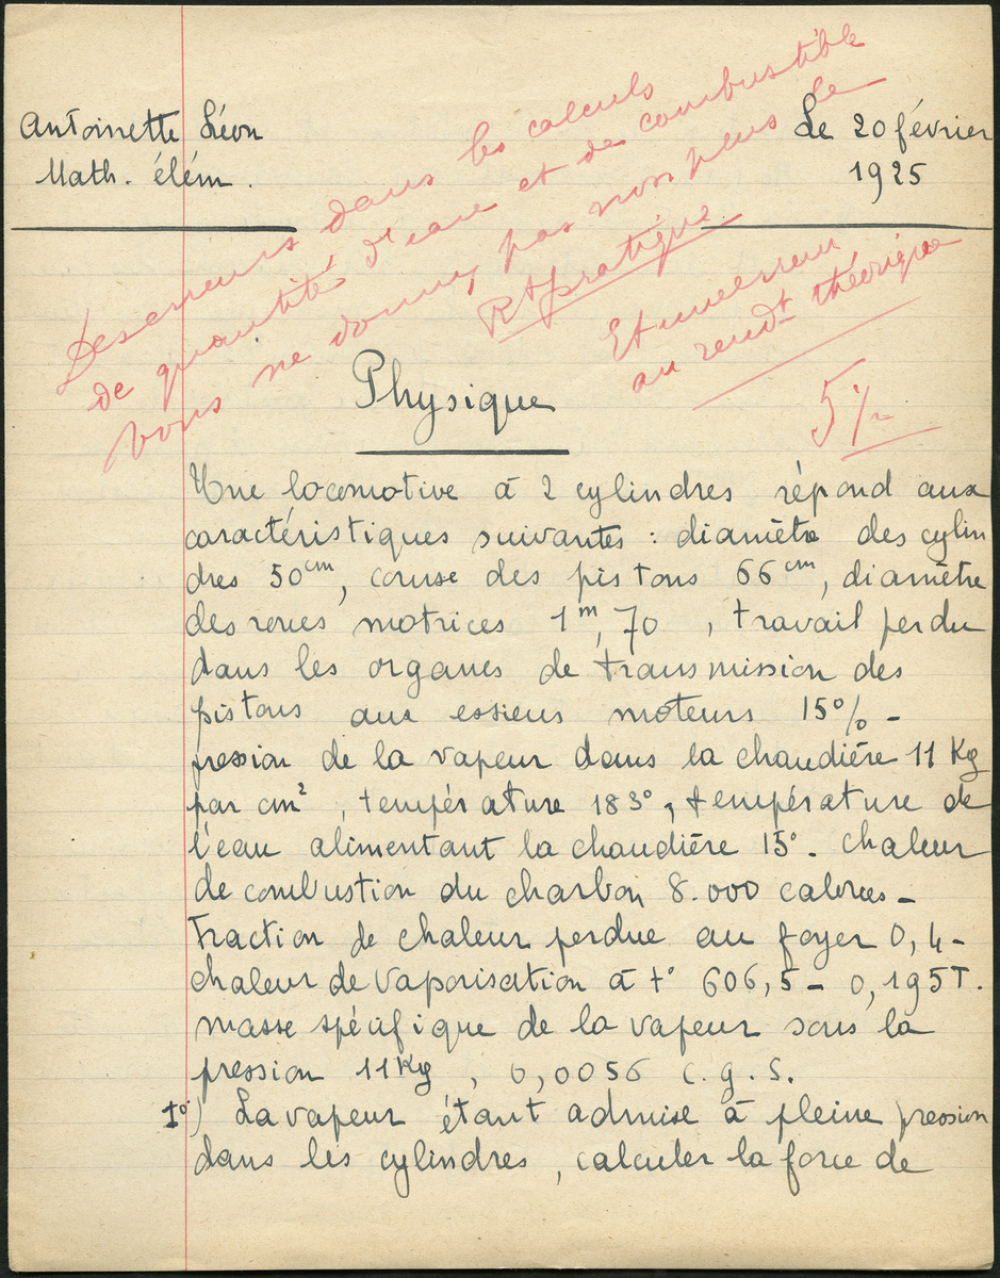 Antoinette Léon
Math. élém.
Le 20 février
1925
Des erreurs dans les calculs
de quantité d'eau et de combustible
vous ne donnez pas non plus le
Rt pratique
Et une erreur
au rendt théorique
5 1/2
Physique
Une locomotive à 2 cylindres répond aux
caractéristiques suivantes : diamètre des cylin
dres 50cm, course des pistons 66cm, diamètre
des roues motrices 1m,70 , travail perdu
dans les organes de transmission des
pistons aux essieux moteurs 15% -
pression de la vapeur dans la chaudière 11 Kg
par cm² , température 183°, température de
l'eau alimentant la chaudière 15°. chaleur
de combustion du charbon 8.000 calories -
Fraction de chaleur perdue au foyer 0,4 -
chaleur de vaporisation à t° 606,5 - 0,195T.
masse spécifique de la vapeur sous la
pression 11Kg , 0,0056 C.g.S.
1°) La vapeur étant admise à pleine pression
dans les cylindres, calculer la force de